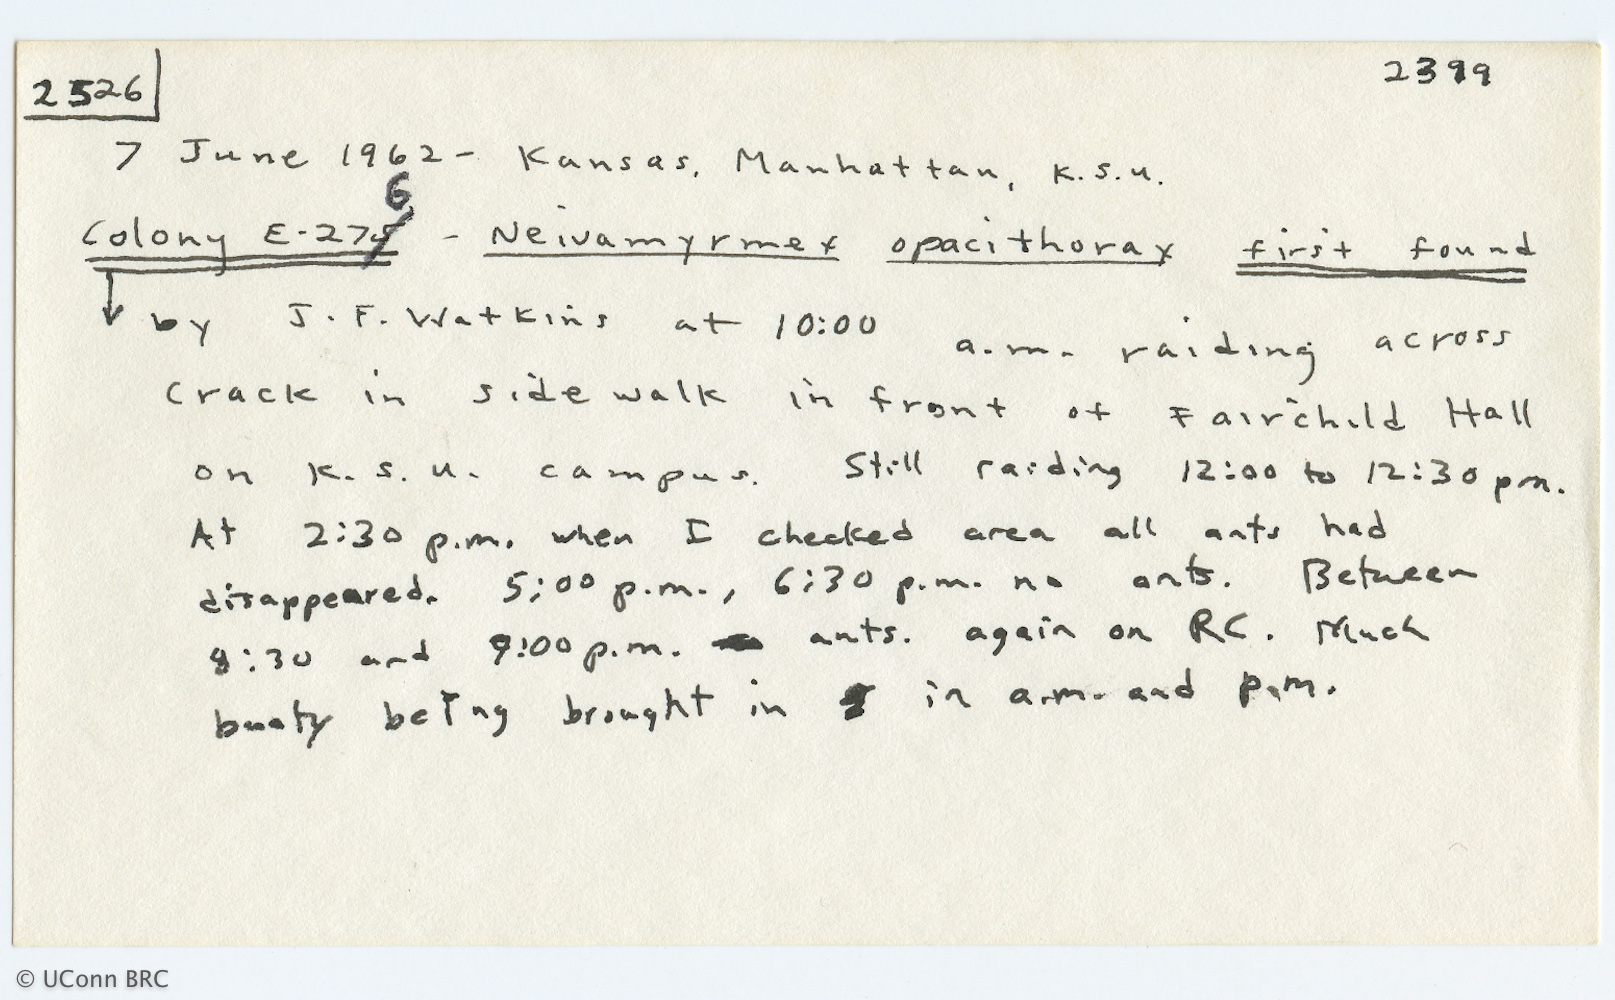 2526
2399
7 June 1962 - Kansas, Manhattan, K.S.U.
Colony E-276 - Neivamyrmex opacithorax first found
by J.F. Watkins at 10:00 a.m. raiding across
crack in sidewalk in front of Fairchild Hall
on K.S.U. campus. Still raiding 12:00 to 12:30 pm.
At 2:30 p.m. when I checked area all ants had
disappeared. 5:00 p.m., 6:30 p.m. no ants. Between
8:30 and 9:00 p.m. ants. again on RC. Much
booty being brought in in a.m. and p.m.
© UConn BRC